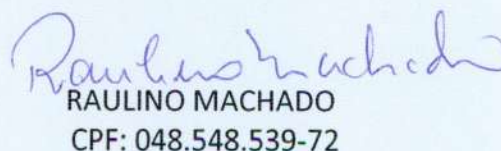 Raulino Machado
RAULINO MACHADO
CPF: 048.548.539-72